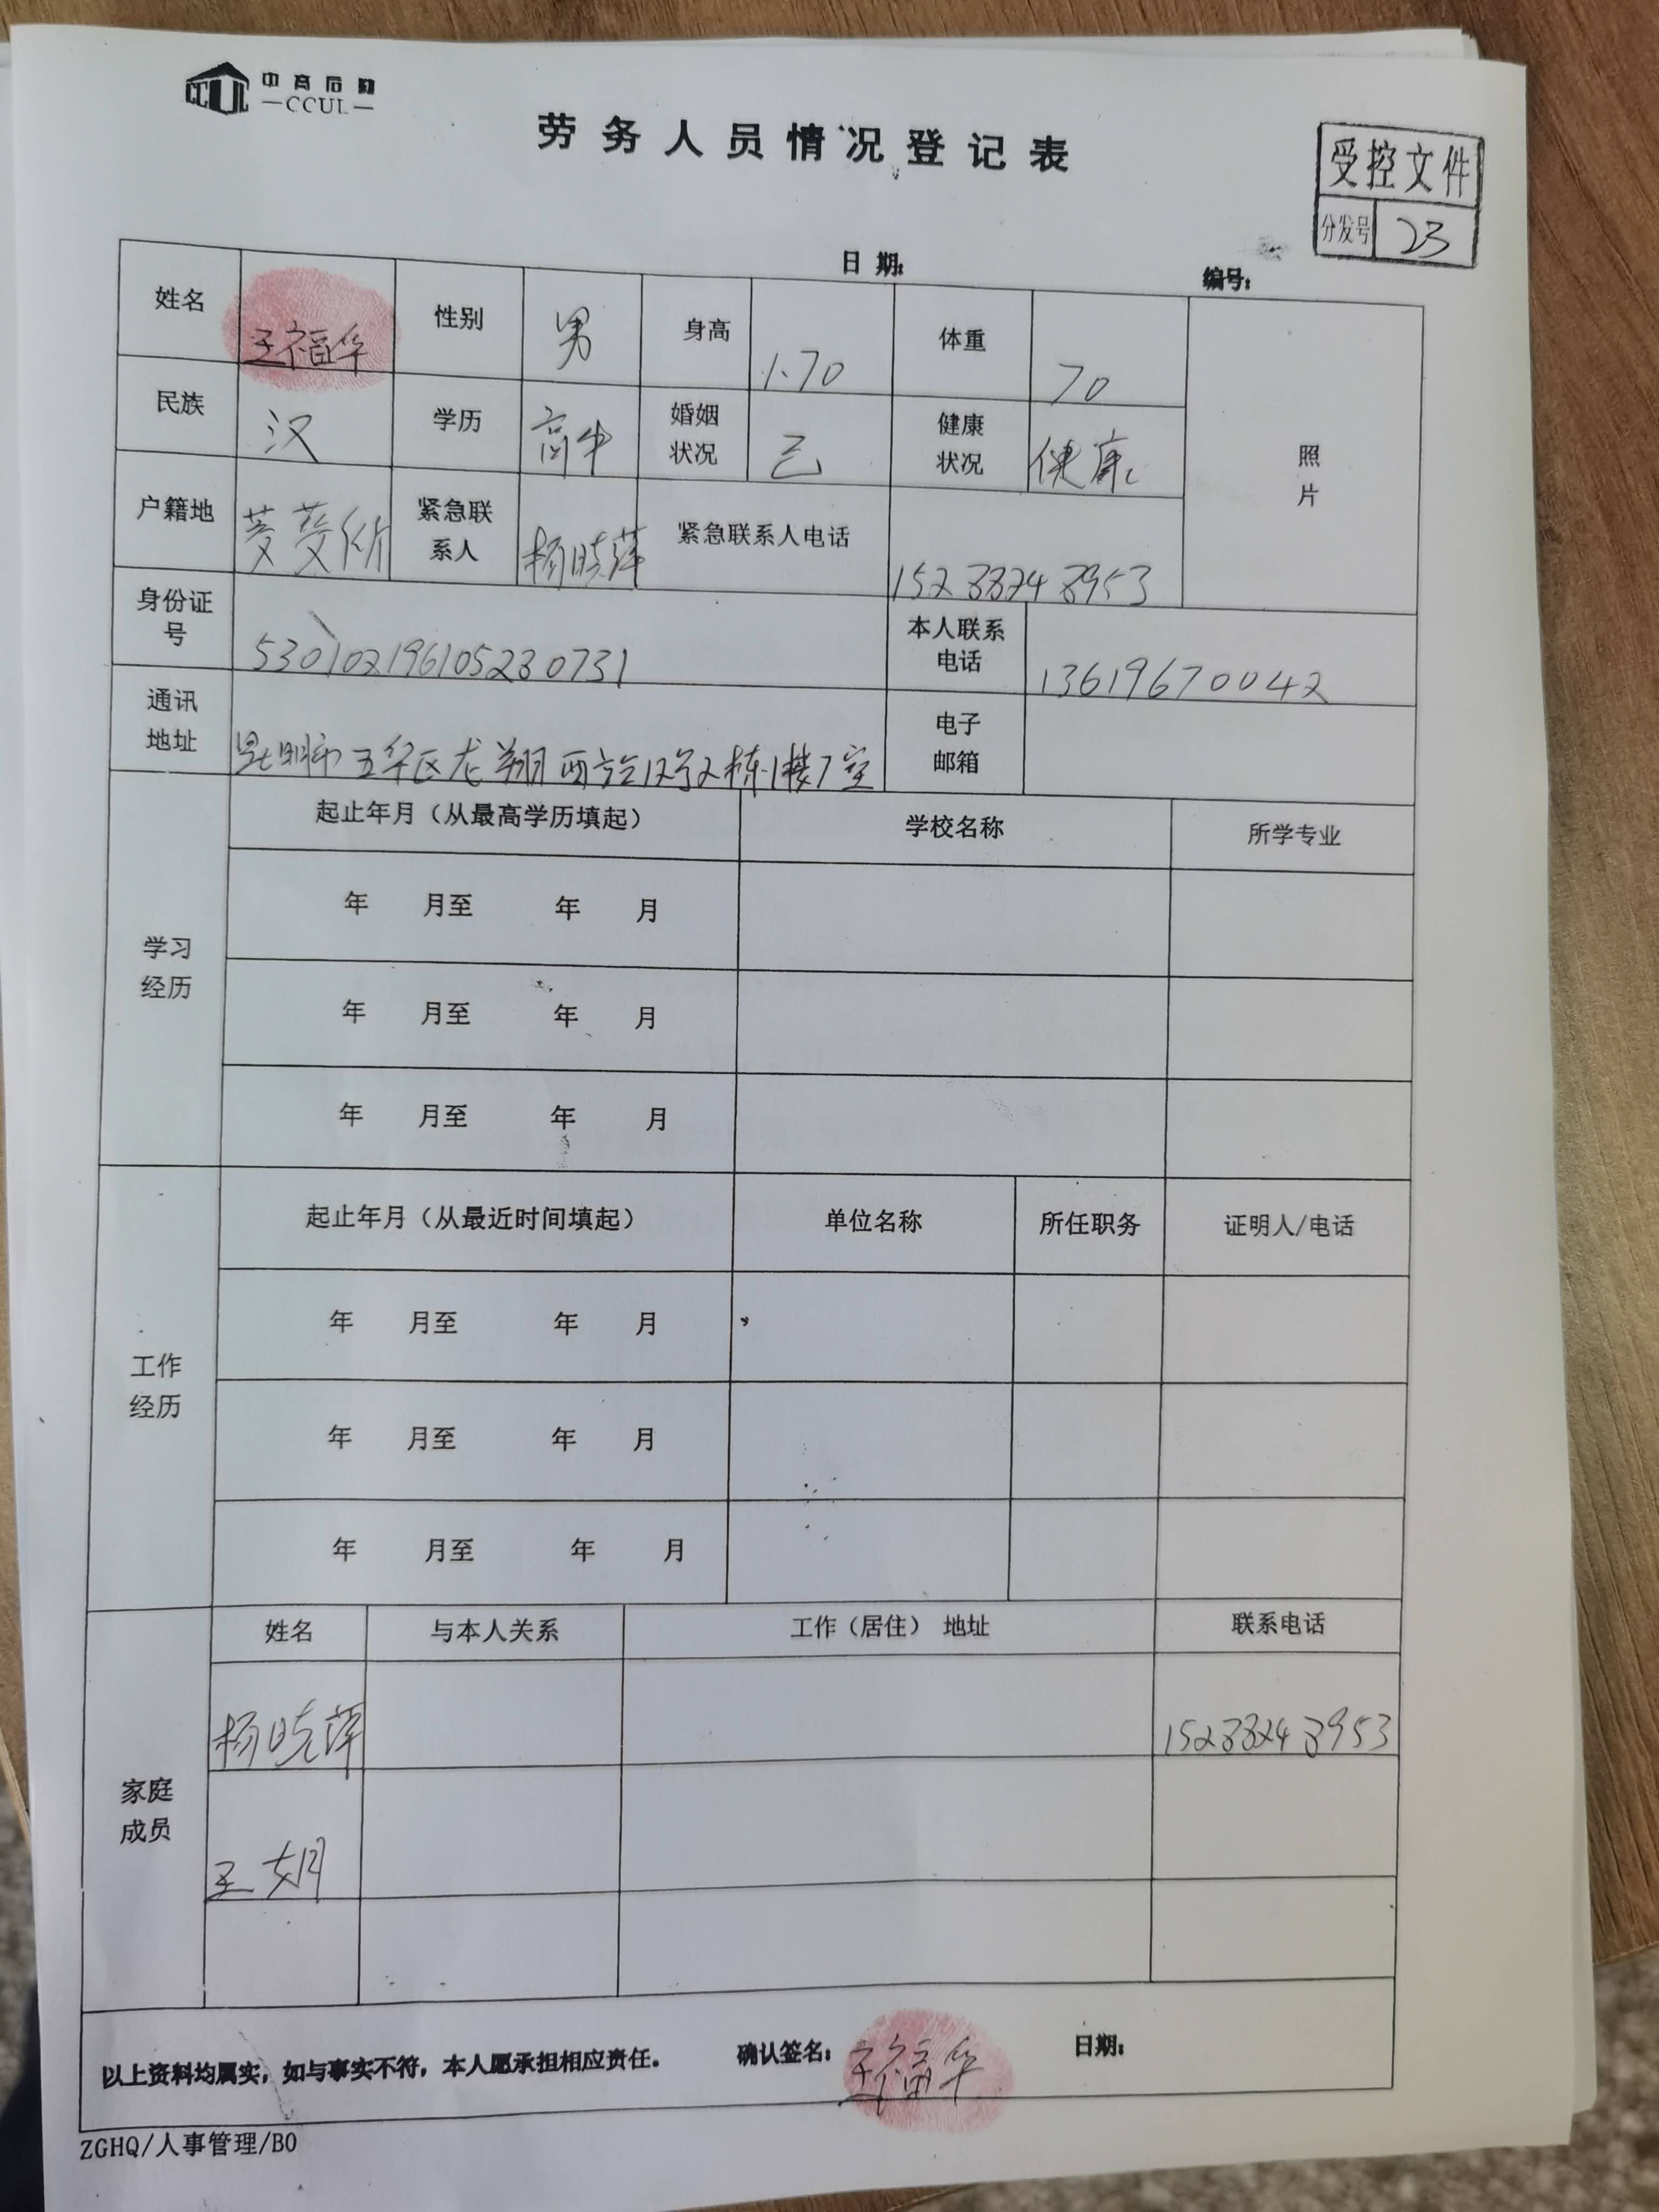 中商后勤
—CCUL—
劳务人员情况登记表
受控文件
分发号 23
日期: 编号:
姓名 王福华 性别 男 身高 1.70 体重 70 照片
民族 汉 学历 高中 婚姻状况 已 健康状况 健康
户籍地 紧急联系人 杨晓萍 紧急联系人电话 15288248953
身份证号 530102196105280731 本人联系电话 13619670042
通讯地址 昆明市五华区龙翔西 12号2栋1楼7室 电子邮箱
学习经历 起止年月(从最高学历填起) 学校名称 所学专业
年 月至 年 月
年 月至 年 月
年 月至 年 月
工作经历 起止年月(从最近时间填起) 单位名称 所任职务 证明人/电话
年 月至 年 月
年 月至 年 月
年 月至 年 月
家庭成员 姓名 与本人关系 工作(居住) 地址 联系电话
杨晓萍 15288248953
王
以上资料均属实,如与事实不符,本人愿承担相应责任。 确认签名: 王福华 日期:
ZGHQ/人事管理/B0